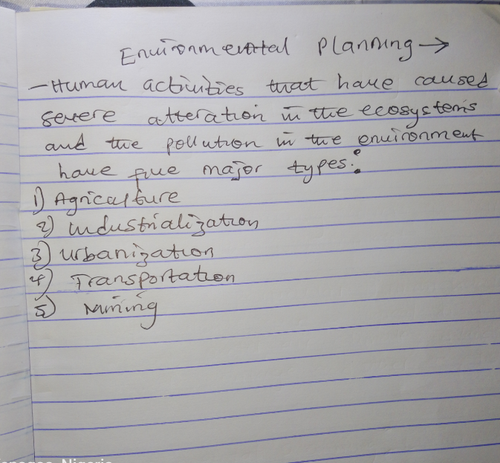 Environmental Planning →
- Human activities that have caused
severe alteration in the ecosystems
and the pollution in the environment
have five major types:
1) Agriculture
2) industrialization
3) urbanization
4) Transportation
5) Mining
Nigeria